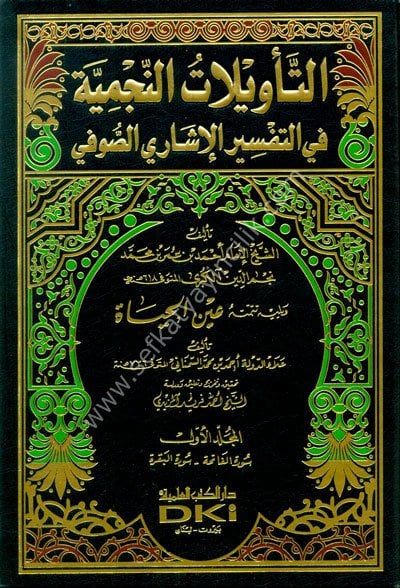 التأويلات النجمية
في التفسير الإشاري الصوفي
تأليف
الشيخ الإمام أحمد بن عمر بن محمد
نجم الدين الكبرى المتوفى ٦١٨ سنة
ويليه تتمته عين الحياة
تأليف
علاء الدولة أحمد بن محمد السمناني المتوفى ٧٣٦ سنة
تحقيق وتخريج وتعليق ودراسة
الشيخ أحمد فريد المزيدي
المجلد الأول
سورة الفاتحة - سورة البقرة
دار الكتب العلمية
DKi
بيروت - لبنان
www.sefkatyayincilik.com